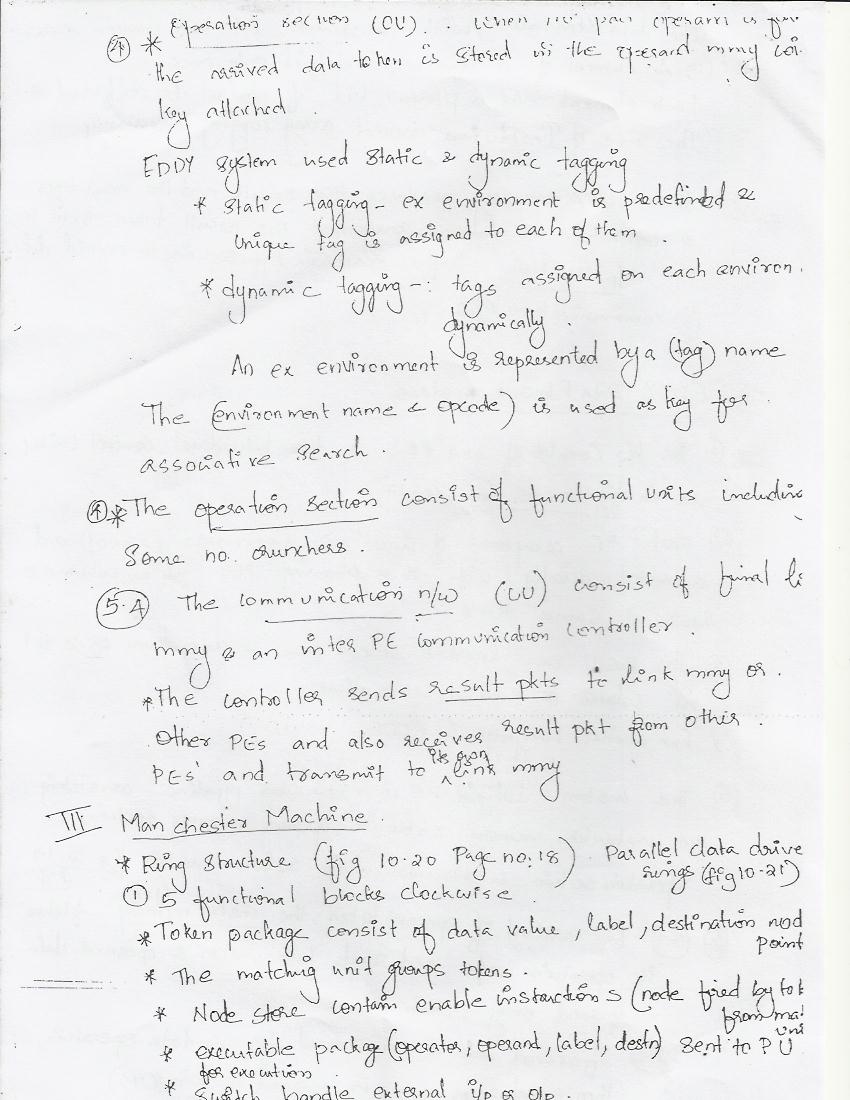 ④ * Operation section (OU). When no pair operand is
the arrived data token is stored in the operand mmy
key attached.
EDDY system used static & dynamic tagging
* static tagging - ex environment is predefined &
unique tag is assigned to each of them.
* dynamic tagging -: tags assigned on each environ.
dynamically.
An ex environment is represented by a (tag) name
The (environment name & opcode) is used as key for
associative search.
④ * The operation section consist of functional units
Some no. crunchers.
5.4 The communication n/w (CU) consist of
mmy & an inter PE communication controller.
* The controller sends result pkts to link mmy or
Other PEs and also receives result pkt from other
PEs' and transmit to its own link mmy
III Manchester Machine.
* Ring Structure (fig 10.20 Page no:18) Parallel data drive
rings (fig 10-21)
① 5 functional blocks clockwise.
* Token package consist of data value, label, destination nod
point
* The matching unit groups tokens.
* Node store contain enable instructions (node fired by tok
from mat
unit
* executable package (operator, operand, label, destn) sent to PU
for execution.
* Switch handle external i/p or o/p.